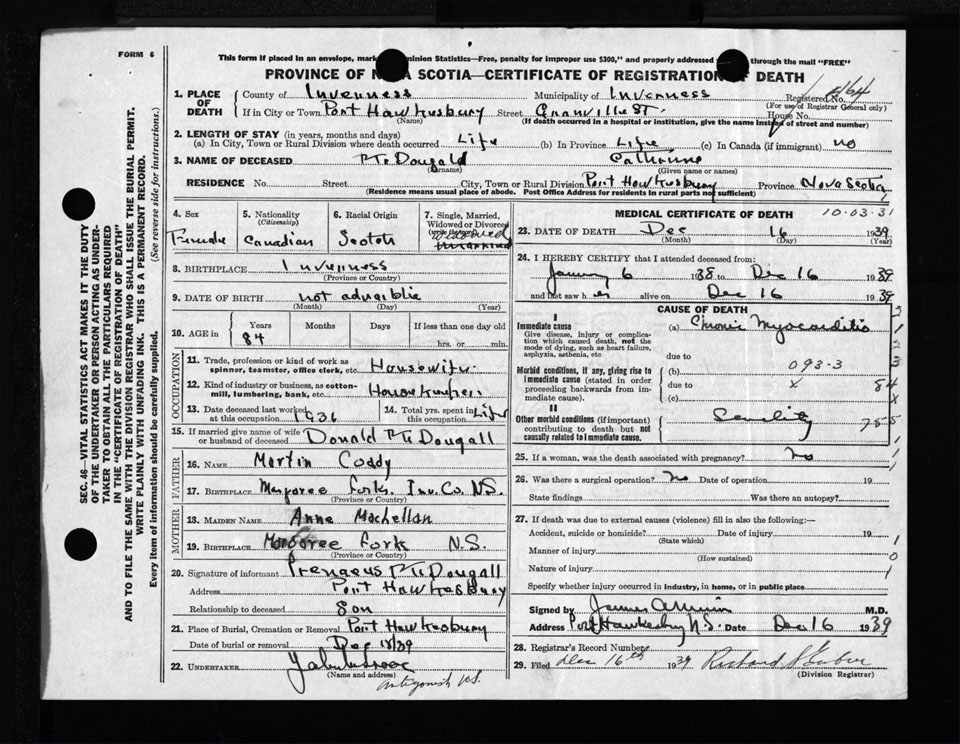 FORM 6
This form if placed in an envelope, mark minion Statistics—Free, penalty for improper use $300," and properly addressed through the mail "FREE"
PROVINCE OF N A SCOTIA—CERTIFICATE OF REGISTRATION DEATH
1. PLACE OF DEATH County of Inverness Municipality of Inverness Registered No. 464
(For use of Registrar General only)
If in City or Town Port Hawkesbury Street Granville St. House No.
(Name) (If death occurred in a hospital or institution, give the name instead of street and number)
2. LENGTH OF STAY (in years, months and days)
(a) In City, Town or Rural Division where death occurred Life (b) In Province Life (c) In Canada (if immigrant) no
3. NAME OF DECEASED McDougald Catherine
(Surname) (Given name or names)
RESIDENCE No. Street City, Town or Rural Division Port Hawkesbury Province Nova Scotia
(Residence means usual place of abode. Post Office Address for residents in rural parts not sufficient)
4. Sex Female
5. Nationality (Citizenship) Canadian
6. Racial Origin Scotch
7. Single, Married, Widowed or Divorced Widowed
8. BIRTHPLACE Inverness
(Province or Country)
9. DATE OF BIRTH not
(Month) (Day) (Year)
10. AGE in Years Months Days If less than one day old
84 hrs. or min.
OCCUPATION
11. Trade, profession or kind of work as spinner, teamster, office clerk, etc. Housewife
12. Kind of industry or business, as cotton-mill, lumbering, bank, etc.
13. Date deceased last worked at this occupation 1936 14. Total yrs. spent in this occupation Life
15. If married give name of wife or husband of deceased Donald McDougall
FATHER
16. NAME Martin Coady
17. BIRTHPLACE Margaree Forks Inv. Co. N.S.
(Province or Country)
MOTHER
18. MAIDEN NAME Anne MacLellan
19. BIRTHPLACE Margaree Fork N.S.
(Province or Country)
20. Signature of informant McDougall
Address Port Hawkesbury
Relationship to deceased Son
21. Place of Burial, Cremation or Removal Port Hawkesbury
Date of burial or removal Dec 18/39
22. UNDERTAKER
(Name and address)
Antigonish N.S.
MEDICAL CERTIFICATE OF DEATH 10-03-31
23. DATE OF DEATH Dec 16 1939
(Month) (Day) (Year)
24. I HEREBY CERTIFY that I attended deceased from:
January 6 1938 to Dec 16 1939
and last saw her alive on Dec 16 1939
CAUSE OF DEATH
I
Immediate cause
Give disease, injury or complication which caused death, not the mode of dying, such as heart failure, asphyxia, asthenia, etc
(a) Chronic Myocarditis
due to
Morbid conditions, if any, giving rise to immediate cause (stated in order proceeding backwards from immediate cause).
(b) 093-3
due to x
(c)
II
Other morbid conditions (if important) contributing to death but not causally related to immediate cause.
Senility
25. If a woman, was the death associated with pregnancy? No
26. Was there a surgical operation? No Date of operation 19
State findings Was there an autopsy?
27. If death was due to external causes (violence) fill in also the following:—
Accident, suicide or homicide? Date of injury 19
(State which)
Manner of injury
(How sustained)
Nature of injury
Specify whether injury occurred in industry, in home, or in public place
Signed by M.D.
Address Port Hawkesbury N.S. Date Dec 16 1939
28. Registrar's Record Number
29. Filed Dec 16th 1939 Richard
(Division Registrar)
SEC. 46—VITAL STATISTICS ACT MAKES IT THE DUTY
OF THE UNDERTAKER OR PERSON ACTING AS UNDER-
TAKER TO OBTAIN ALL THE PARTICULARS REQUIRED
IN THE "CERTIFICATE OF REGISTRATION OF DEATH"
AND TO FILE THE SAME WITH THE DIVISION REGISTRAR WHO SHALL ISSUE THE BURIAL PERMIT.
WRITE PLAINLY WITH UNFADING INK. THIS IS A PERMANENT RECORD.
Every item of information should be carefully supplied. (See reverse side for instructions.)